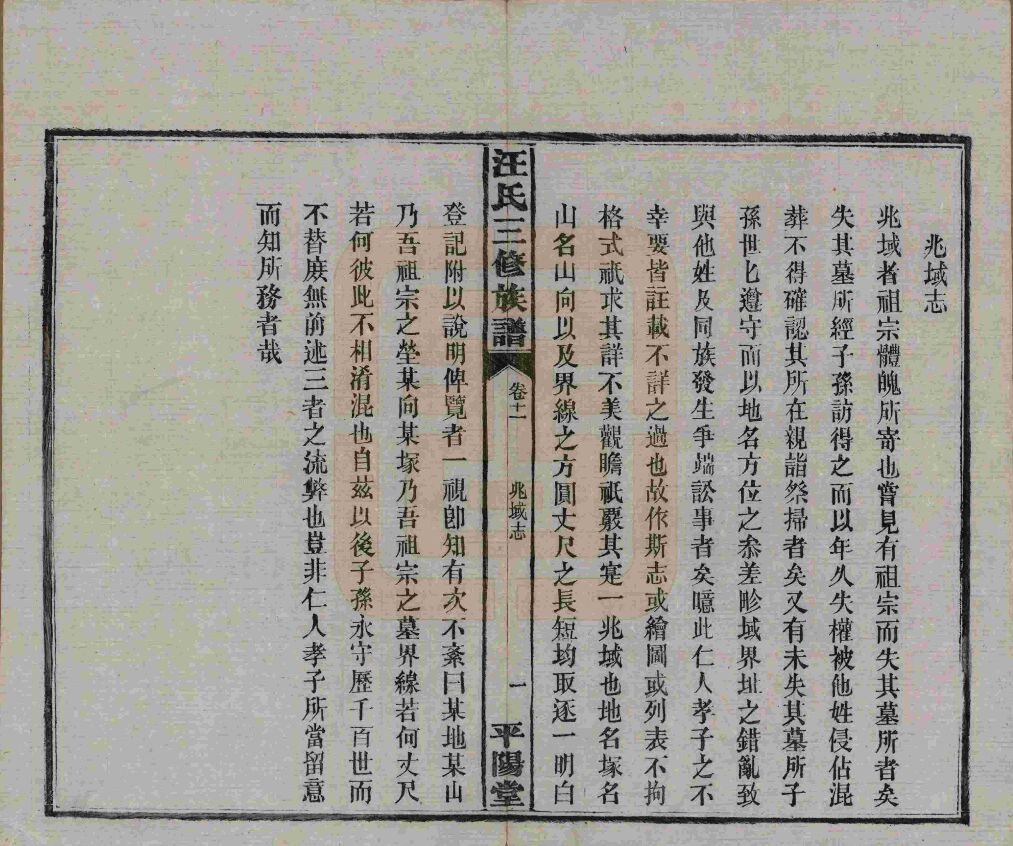 兆域志
兆域者祖宗體魄所寄也嘗見有祖宗而失其墓所者矣
失其墓所經子孫訪得之而以年久失權被他姓侵佔混
葬不得確認其所在親詣祭掃者矣又有未失其墓所子
孫世匕遵守而以地名方位之叅差畛域界址之錯亂致
與他姓及同族發生爭端訟事者矣噫此仁人孝子之不
幸要皆註載不詳之過也故作斯志或繪圖或列表不拘
格式祇求其詳不美觀瞻祇嚴其寔一兆域也地名塚名
山名山向以及界線之方圓丈尺之長短均取逐一明白
汪氏三修族譜
卷十一
兆域志
一
平陽堂
登記附以說明俾覽者一視卽知有次不紊曰某地某山
乃吾祖宗之塋某向某塚乃吾祖宗之墓界線若何丈尺
若何彼此不相淆混也自茲以後子孫永守歷千百世而
不替庶無前述三者之流弊也豈非仁人孝子所當留意
而知所務者哉